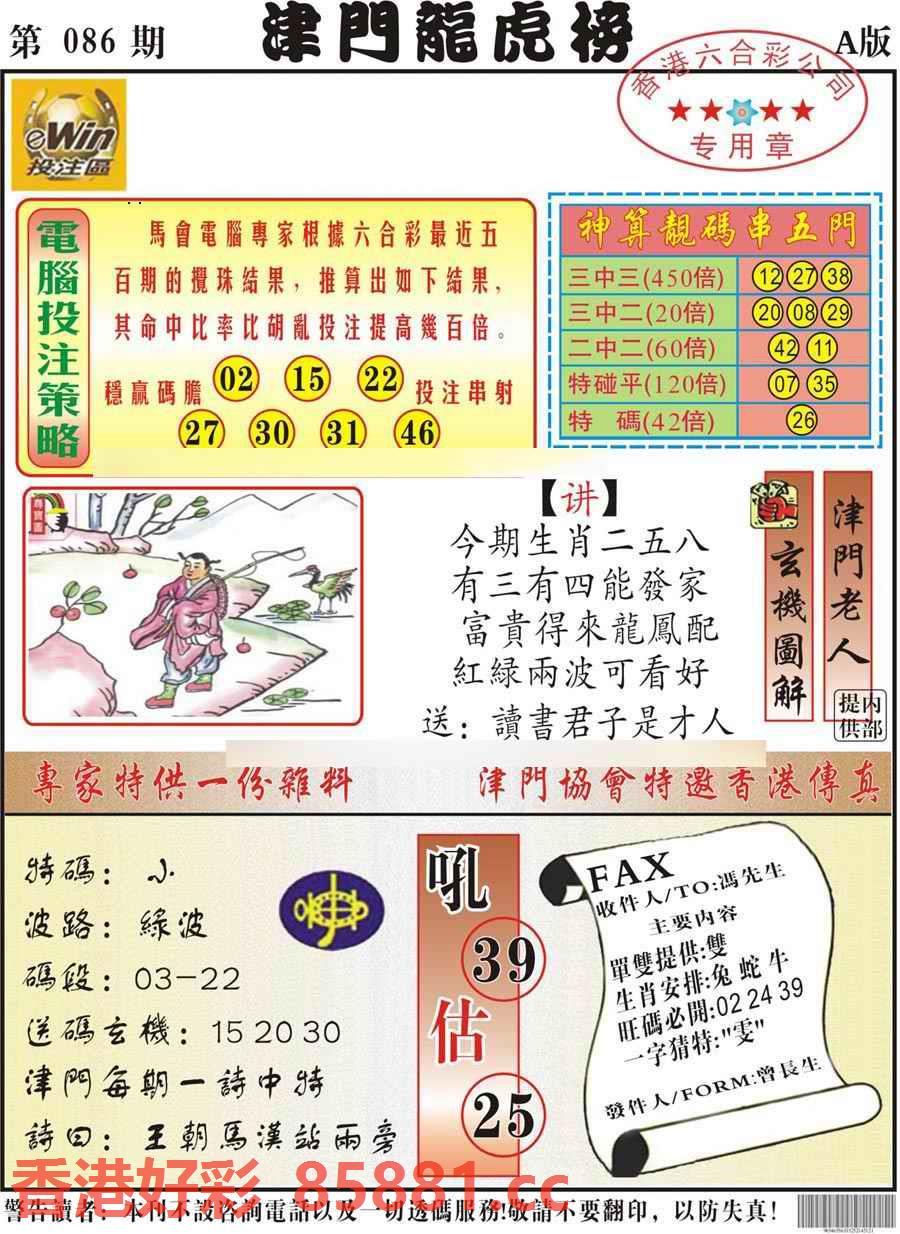 第 086 期
津門龍虎榜
A版
香港六合彩公司
专用章
eWin
投注區
電腦投注策略
馬會電腦專家根據六合彩最近五
百期的攪珠結果，推算出如下結果，
其命中比率比胡亂投注提高幾百倍。
穩贏碼膽 02 15 22 投注串射
27 30 31 46
神算靚碼串五門
三中三(450倍) 12 27 38
三中二(20倍) 20 08 29
二中二(60倍) 42 11
特碰平(120倍) 07 35
特 碼(42倍) 26
尋寶圖
【讲】
今期生肖二五八
有三有四能發家
富貴得來龍鳳配
紅緑兩波可看好
送：讀書君子是才人
玄機圖解
津門老人
内部提供
專家特供一份雜料
津門協會特邀香港傳真
特碼：小
波路：綠波
碼段：03-22
送碼玄機：15 20 30
津門每期一詩中特
詩曰：王朝馬漢站兩旁
吼
39
估
25
FAX
收件人/TO:馮先生
主要内容
單雙提供:雙
生肖安排:兔 蛇 牛
旺碼必開:02 24 39
一字猜特:"雯"
發件人/FORM:曾長生
香港好彩 85881.cc
警告讀者：本刊不設咨詢電話以及一切透碼服務!敬請不要翻印，以防失真!